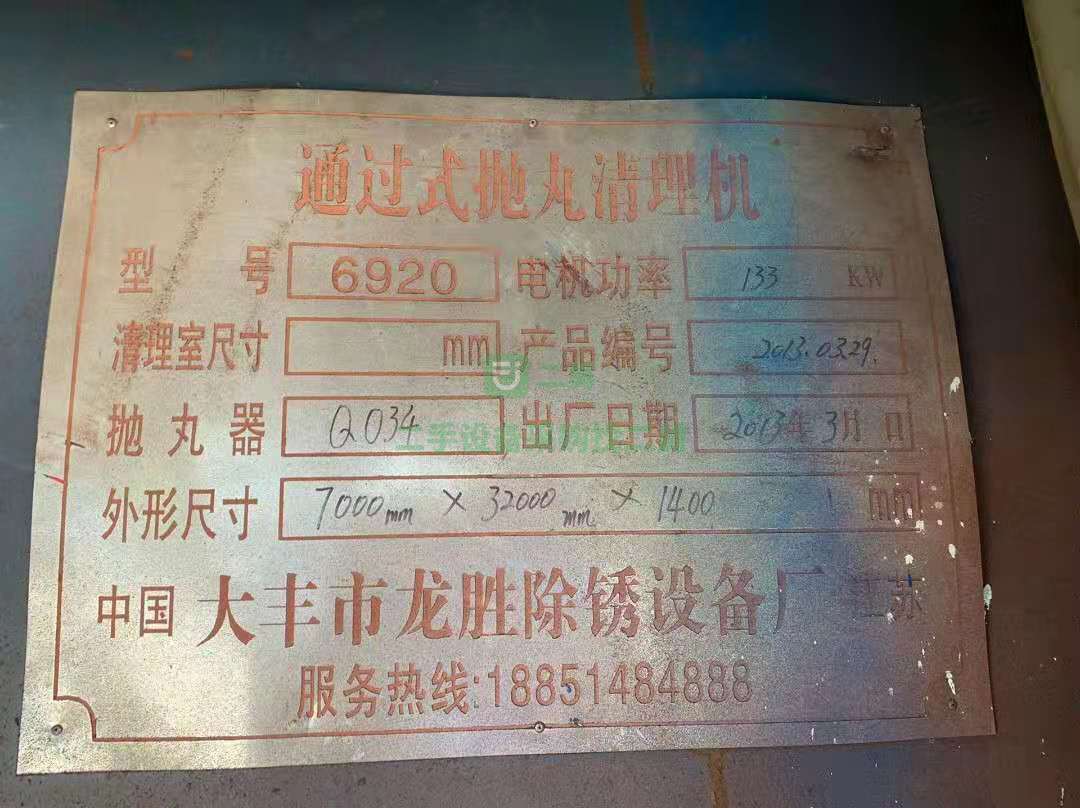 通过式抛丸清理机
型 号 6920 电机功率 133 KW
清理室尺寸 mm 产品编号 2013.03.29.
抛丸器 Q034 出厂日期 2013年3月 日
外形尺寸 7000mm × 32000mm × 1400 mm
中国 大丰市龙胜除锈设备厂 江苏
服务热线:18851484888